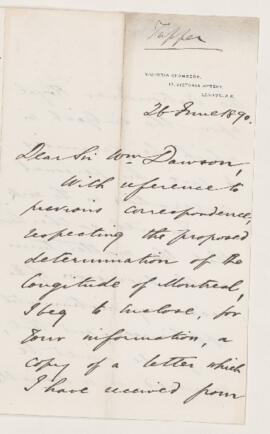 Tupper
VICTORIA CHAMBERS,
17, VICTORIA STREET,
LONDON, S.W.
26 June 1890.
Dear Sir Wm Dawson,
With reference to
previous correspondence,
respecting the proposed
determination of the
Longitude of Montreal,
I beg to enclose, for
your information, a
copy of a letter which
I have received from